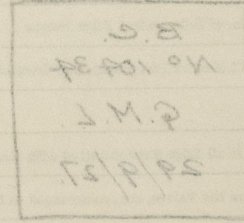 B.C.
Nº 10434
G.M.L
29/9/27.